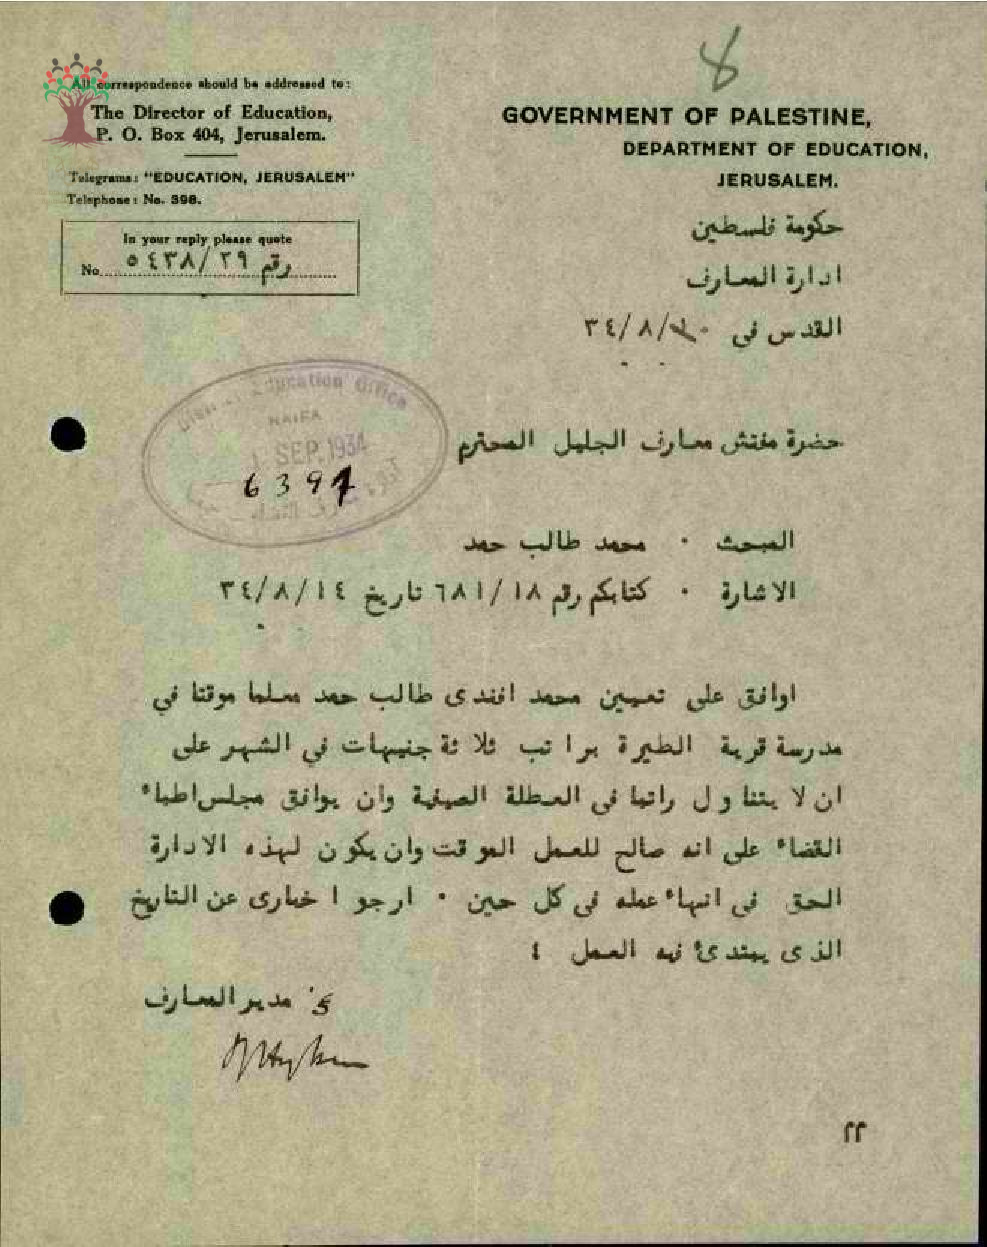 8
All correspondence should be addressed to:
The Director of Education,
P. O. Box 404, Jerusalem.
Telegrams: "EDUCATION, JERUSALEM"
Telephone: No. 398.
In your reply please quote
No. رقم ٥٤٣٨/٢٩
GOVERNMENT OF PALESTINE,
DEPARTMENT OF EDUCATION,
JERUSALEM.
حكومة فلسطين
ادارة المعارف
القدس فى ٣٤/٨/
District Education Office
HAIFA
1 SEP. 1934
6397
حضرة مفتش معارف الجليل المحترم
المبحث ٠ محمد طالب حمد
الاشارة ٠ كتابكم رقم ٦٨١/١٨ تاريخ ٣٤/٨/١٤
اوافق على تعيين محمد افندى طالب حمد معلما موقتا في
مدرسة قرية الطيرة براتب ثلاثة جنيهات في الشهر على
ان لا يتناول راتبا فى العطلة الصيفية وان يوافق مجلس اطباء
القضاء على انه صالح للعمل الموقت وان يكون لهذه الادارة
الحق فى انهاء عمله فى كل حين ٠ ارجو اخبارى عن التاريخ
الذى يبتدئ فيه العمل ٤
مدير المعارف
٢٢